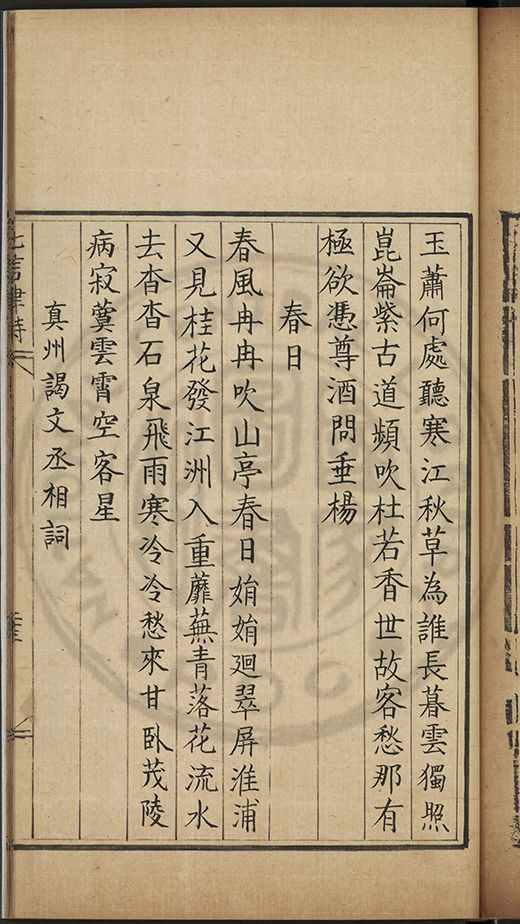 玉蕭何處聽寒江秋草為誰長暮雲獨照
崑崙紫古道頻吹杜若香世故客愁那有
極欲憑尊酒問垂楊
春日
春風冉冉吹山亭春日娟娟廻翠屏淮浦
又見桂花發江洲入重蘼蕪青落花流水
去杳杳石泉飛雨寒冷冷愁來甘臥茂陵
病寂蓂雲霄空客星
真州謁文丞相詞
七言律詩